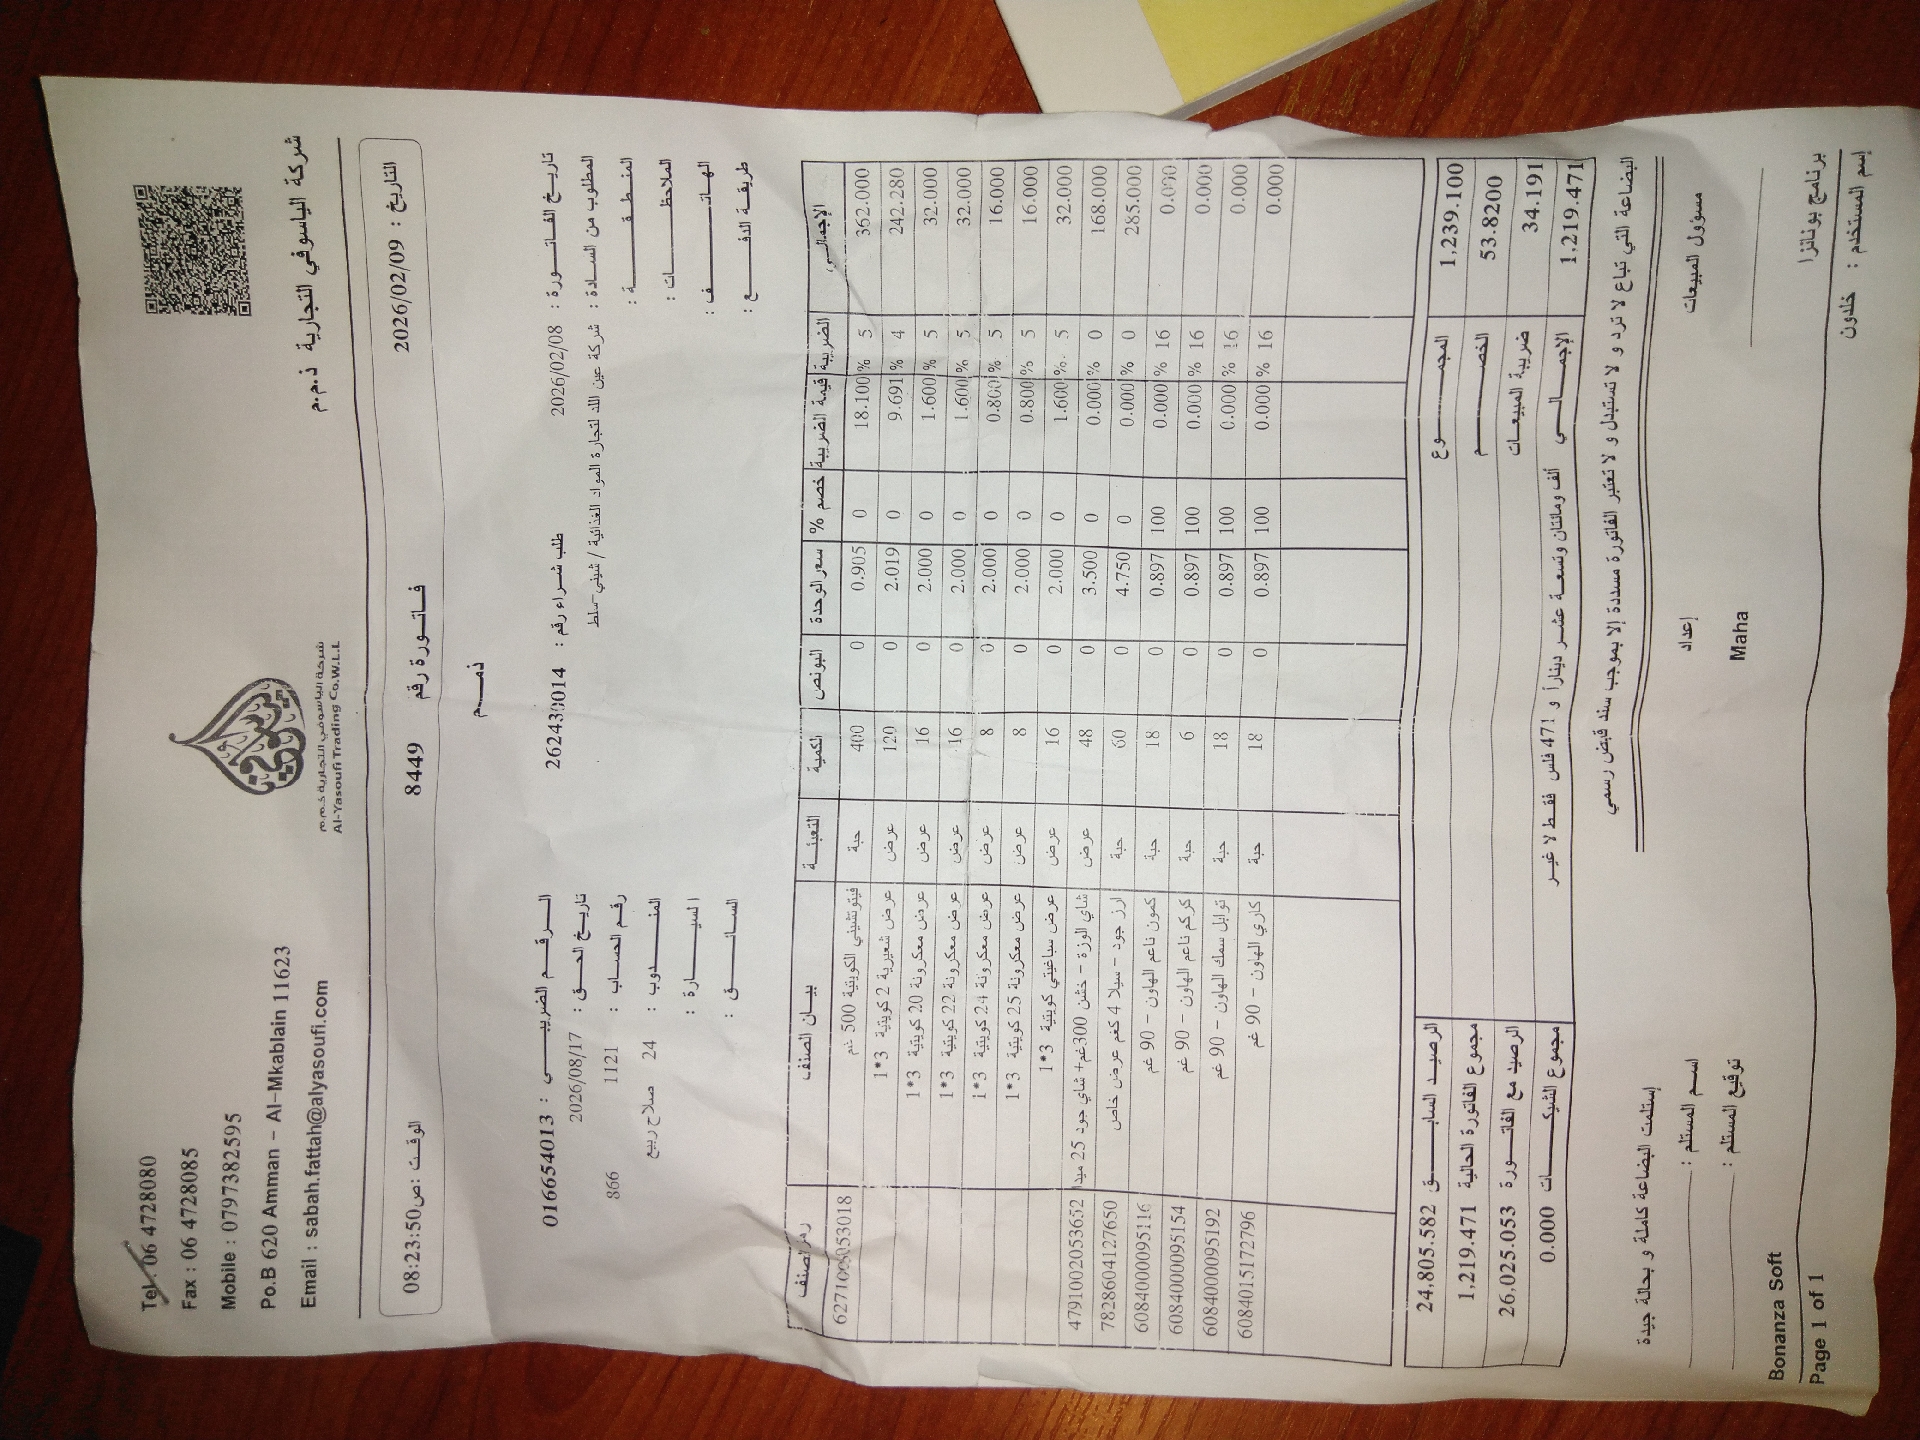 Tel : 06 4728080
Fax : 06 4728085
Mobile : 0797382595
Po.B 620 Amman - Al-Mkablain 11623
Email : sabah.fattah@alyasoufi.com
شركة الياسوفي التجارية ذ.م.م
Al-Yasoufi Trading Co.W.L.L
شركة الياسوفي التجارية ذ.م.م
التاريخ : 2026/02/09
فاتورة رقم 8449
الوقت :ص08:23:50
ذمم
تاريخ الفاتورة : 2026/02/08
طلب شراء رقم : 262430014
الرقم الضريبي : 016654013
المطلوب من السادة : شركة عين اللد لتجارة المواد الغذائية / شيني-سلط
تاريخ الحق : 2026/08/17
المنطقة :
رقم الحساب : 1121 866
الملاحظات :
المندوب : 24 صلاح ربيع
الهاتف :
السيارة :
طريقة الدفع :
السائق :
رمز الصنف بيان الصنف التعبئة الكمية البونص سعر الوحدة خصم % قيمة الضريبة الضريبة الإجمالي
فيتوتشيني الكويتية 500 غم حبة 400 0 0.905 0 18.100 % 5 362.000
عرض شعيرية 2 كويتية 3*1 عرض 120 0 2.019 0 9.691 % 4 242.280
عرض معكرونة 20 كويتية 3*1 عرض 16 0 2.000 0 1.600 % 5 32.000
عرض معكرونة 22 كويتية 3*1 عرض 16 0 2.000 0 1.600 % 5 32.000
عرض معكرونة 24 كويتية 3*1 عرض 8 0 2.000 0 0.800 % 5 16.000
عرض معكرونة 25 كويتية 3*1 عرض 8 0 2.000 0 0.800 % 5 16.000
عرض سباغيتي كويتية 3*1 عرض 16 0 2.000 0 1.600 % 5 32.000
4791002053652 شاي الوزة - خشن 300غم+ شاي جود 25 ميدا عرض 48 0 3.500 0 0.000 % 0 168.000
7828604127650 ارز جود - سيلا 4 كغم عرض خاص حبة 60 0 4.750 0 0.000 % 0 285.000
6084000095116 كمون ناعم الهاون - 90 غم حبة 18 0 0.897 100 0.000 % 16 0.000
6084000095154 كركم ناعم الهاون - 90 غم حبة 6 0 0.897 100 0.000 % 16 0.000
6084000095192 توابل سمك الهاون - 90 غم حبة 18 0 0.897 100 0.000 % 16 0.000
6084015172796 كاري الهاون - 90 غم حبة 18 0 0.897 100 0.000 % 16 0.000
المجموع 1,239.100
الرصيد السابق 24,805.582
الخصم 53.8200
مجموع الفاتورة الحالية 1,219.471
ضريبة المبيعات 34.191
الرصيد مع الفاتورة 26,025.053
الإجمالي 1,219.471
ألف ومائتان وتسعة عشر ديناراً و 471 فلس فقط لا غير
مجموع الشيكات 0.000
البضاعة التي تباع لا ترد و لا تستبدل و لا تعتبر الفاتورة مسددة إلا بموجب سند قبض رسمي
إستلمت البضاعة كاملة و بحالة جيدة
مسؤول المبيعات
إعداد
Maha
اسم المستلم :
توقيع المستلم :
برنامج بونانزا
Bonanza Soft
إسم المستخدم : خلدون
Page 1 of 1